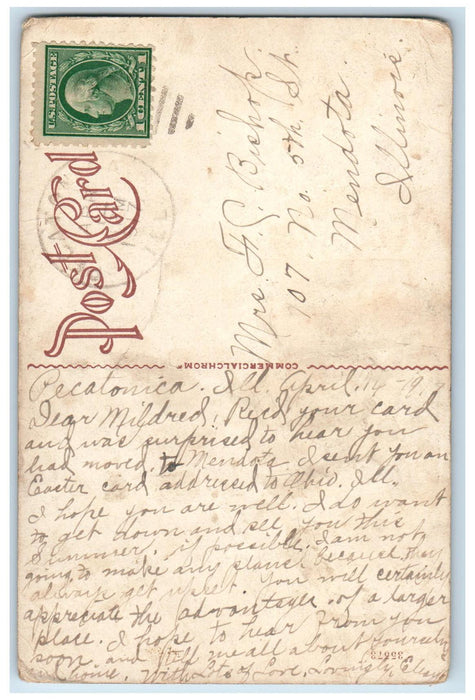 U.S. POSTAGE
1 CENT 1
Post Card
Mrs. F. G. Bishop
107 No. 5th St.
Mendota.
Illinois.
COMMERCIALCHROM
Pecatonica. Ill. April. 14-19
Dear Mildred, Recd your card
and was surprised to hear you
had moved to Mendota. I sent you an
Easter card addressed to Ohio. Ill.
I hope you are well. I do want
to get down and see you this
Summer, if possible, I am not
going to make any plans because they
always get upset. You will certainly
appreciate the advantages of a larger
place. I hope to hear from you
soon and tell me all about yourself
home. With Lots of Love, Lovingly
35573